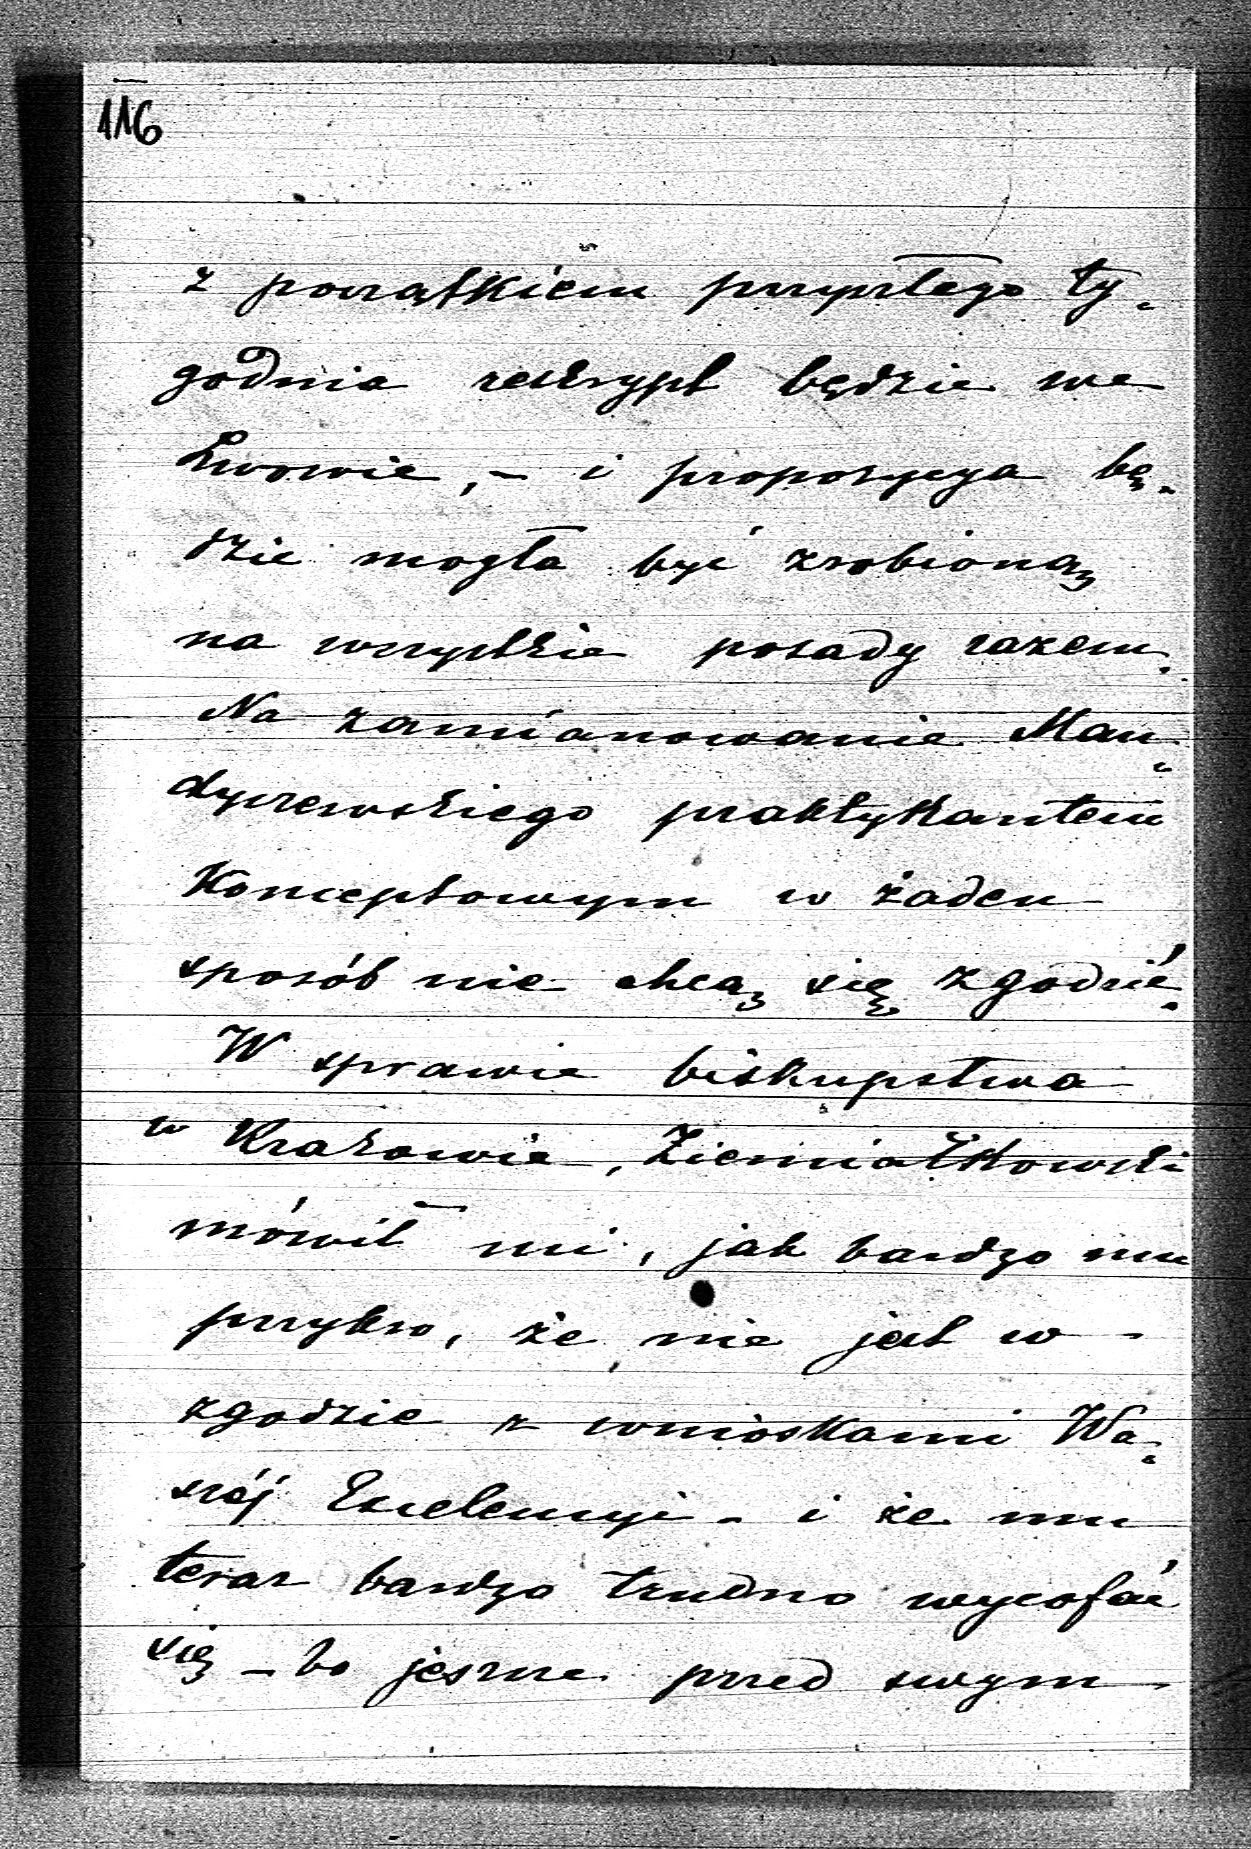 116
z początkiem przyszłego ty-
godnia reskrypt będzie we
Lwowie, - i propozycya bę-
dzie mogła być zrobioną
na wszystkie posady razem.
Na zamianowanie Man-
dyczewskiego praktykantem
Konceptowym w żaden
sposób nie chcą się zgodzić.
W sprawie biskupstwa
w Krakowie, Ziemiałkowski
mówił mi, jak bardzo mu
przykro, że nie jest w
zgodzie z wnioskami Wa-
széj Excelencyi - i że mu
teraz bardzo trudno wycofać
się - bo jeszcze przed swym